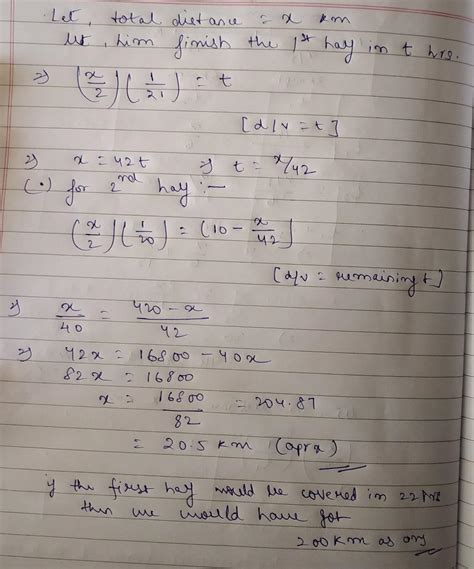 Let, total distance = x km
let, him finish the 1st half in t hrs.
⇒ (x/2)(1/21) = t
[d/v = t]
⇒ x = 42t ⇒ t = x/42
(•) for 2nd half :-
(x/2)(1/20) = (10 - x/42)
[d/v = remaining t]
⇒ x/40 = 420 - x/42
⇒ 42x = 16800 - 40x
82x = 16800
x = 16800/82 = 204.87
= 20.5 km (aprx)
if the first half would be covered in 22
then we would have got
200 km as ans